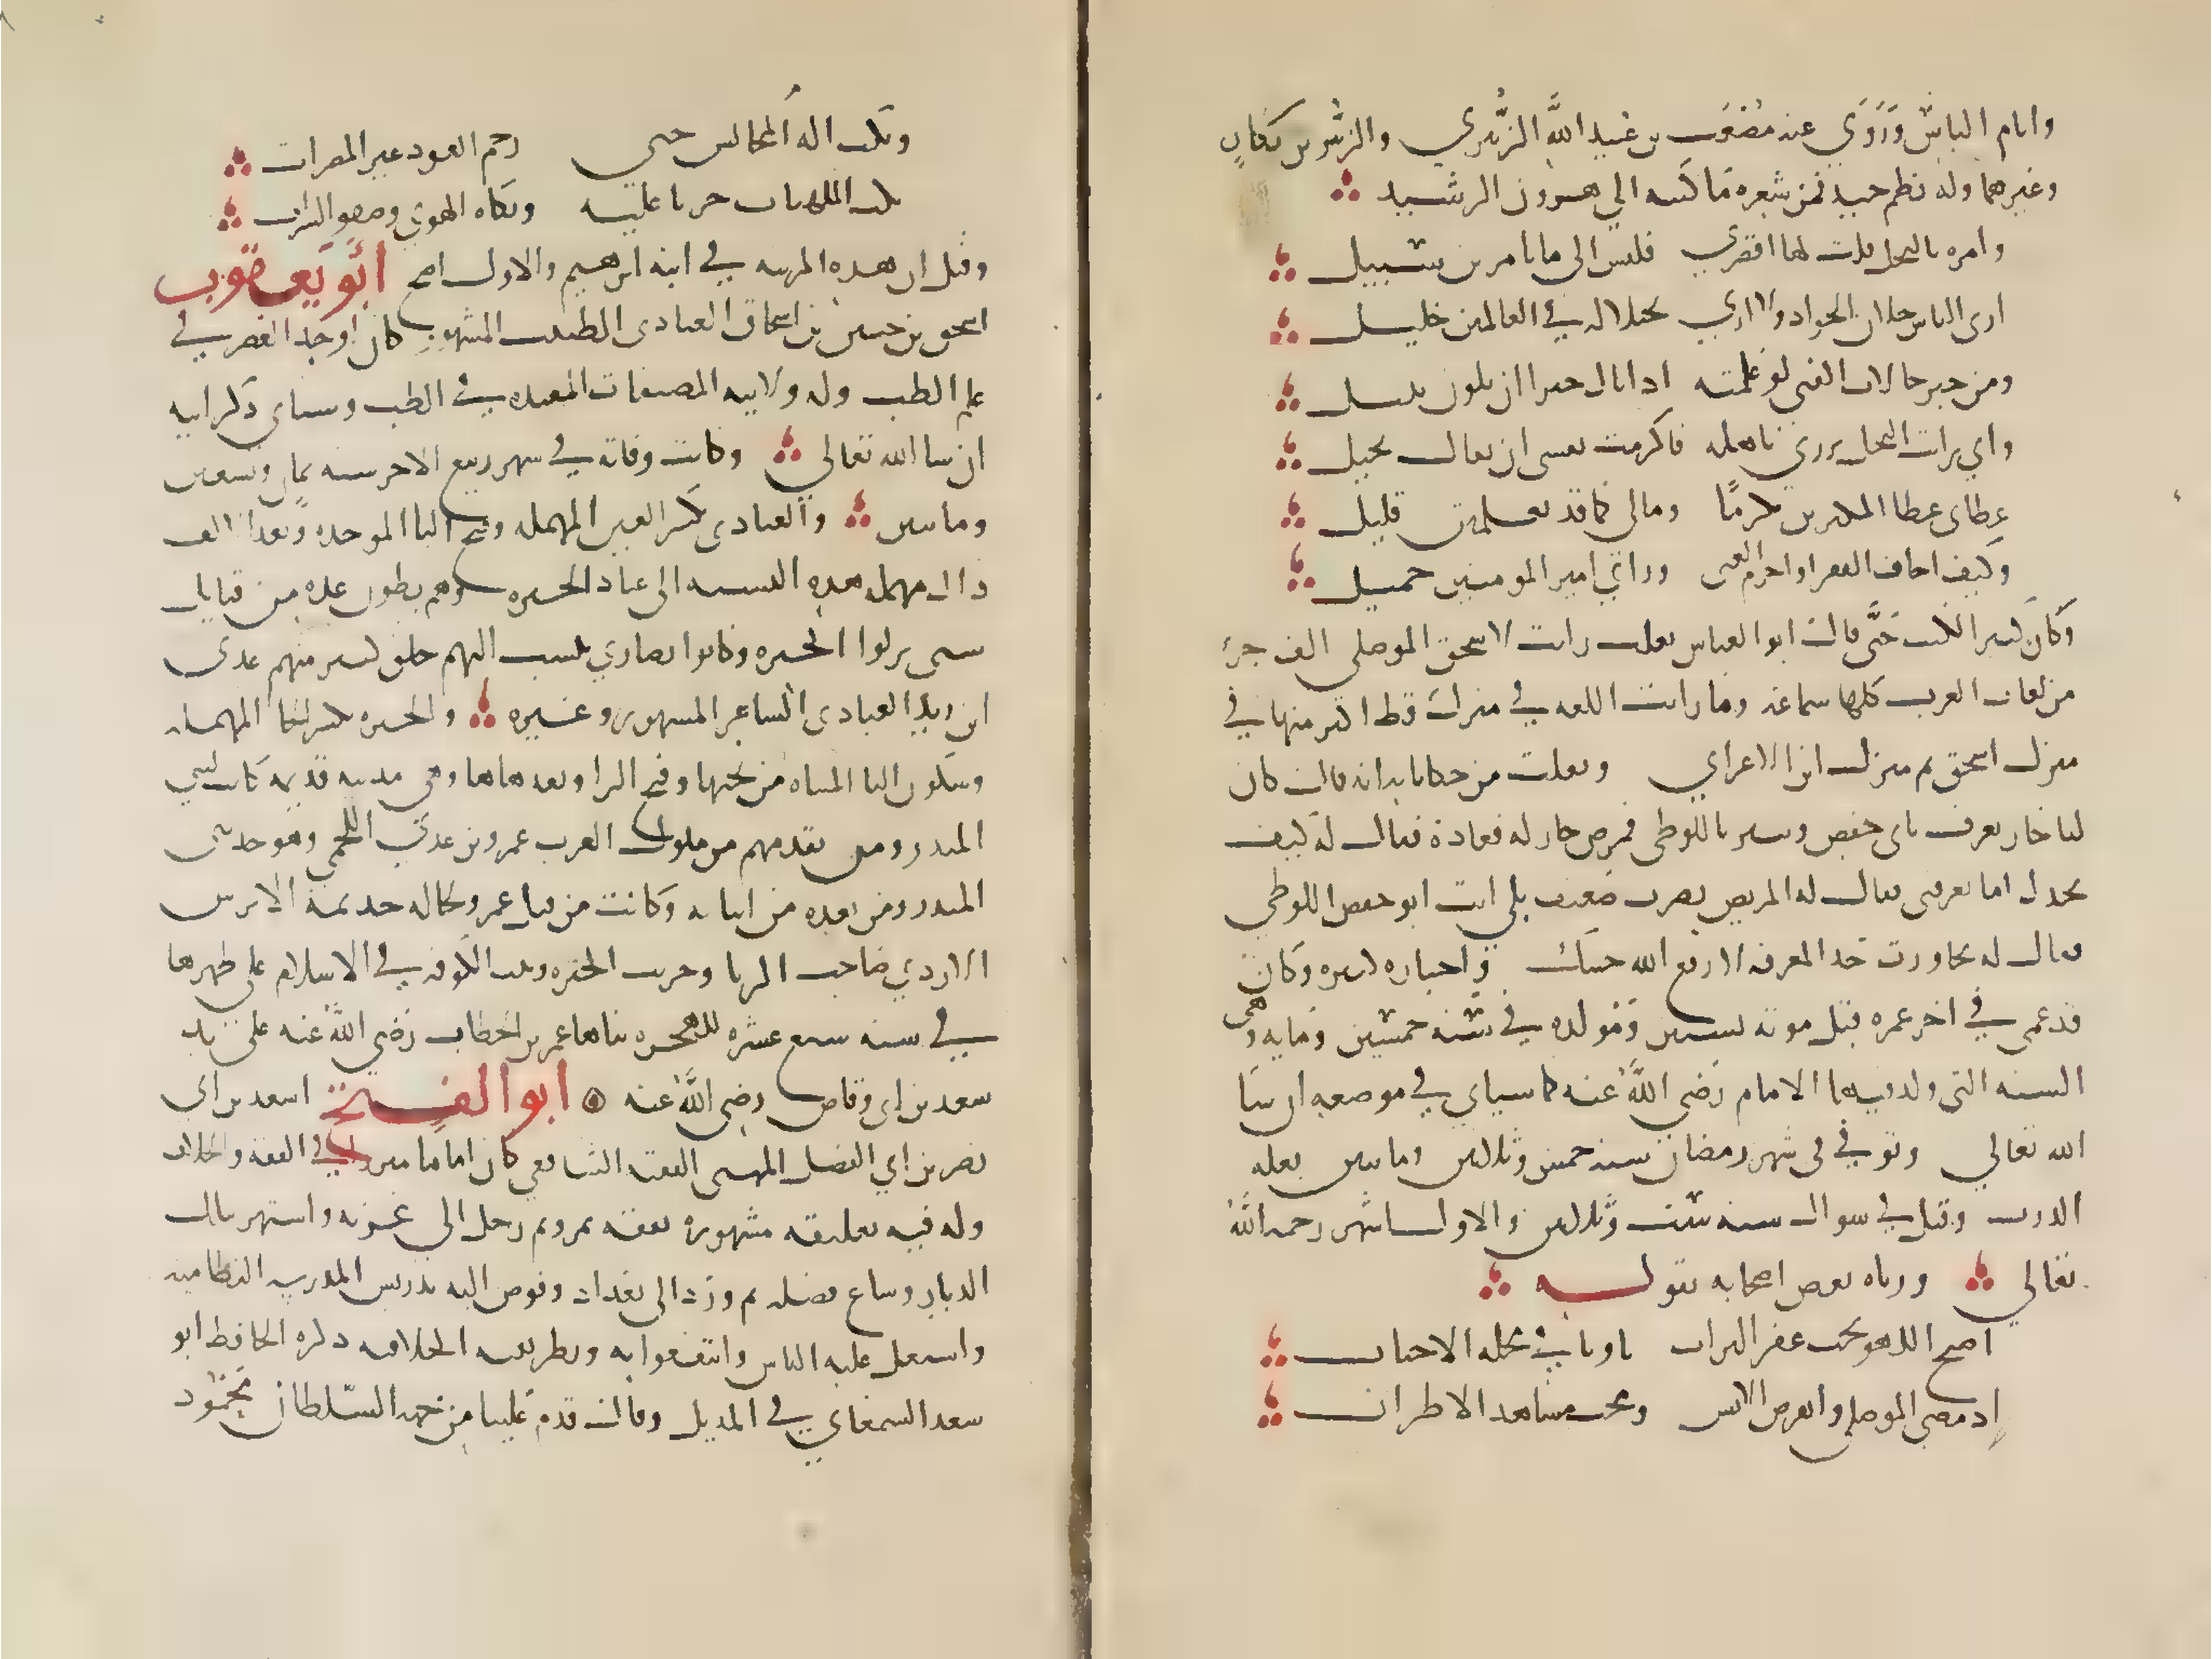 وايام الناس وروى عنه مصعب بن عبد الله الزبيري والزبير بن بكار
وغيرهما وله نظم جيد فمن شعره ما كتبه الي هرون الرشيد
وامره بالبخل قلت لها اقصري فليس الى ما تامرين سبيل
ارى الناس خلان الجواد ولا اري بخيلا له في العالمين خليل
ومن خير حالات الفتى لو علمته اذا نال خيرا ان يكون ينيل
واني رايت البخل يزري باهله فاكرمت نفسي ان يقال بخيل
عطاي عطا المكثرين تكرما ومالي كما قد تعلمين قليل
وكيف اخاف الفقر او احرم الغنى وراي امير المومنين جميل
وكان كثير الكتب حتى قال ابو العباس ثعلب رايت لاسحق الموصلي الف جزء
من لغات العرب كلها سماعه وما رايت اللغه في منزل قط اكثر منها في
منزل اسحق ثم منزل ابن الاعرابي ونقلت من حكاياته انه قال كان
لنا جار يعرف بابي حفص وينبز باللوطي فمرض جار له فعاده فقال له كيف
تجدك اما تعرفني فقال له المريض بصوت ضعيف بلي انت ابو حفص اللوطي
فقال له تجاوزت حد المعرفه لا رفع الله جنبك واخباره كثيره وكان
قد عمي في اخر عمره قبل موته بسنتين ومولده في سنه خمسين ومايه وهي
السنه التي ولد فيها الامام رضي الله عنه كما سياتي في موضعه ان شا
الله تعالي وتوفي في شهر رمضان سنه خمس وثلاثين ومايتين بعله
الذرب وقيل في شوال سنه ست وثلاثين والاول اشهر رحمه الله
تعالي ورثاه بعض اصحابه بقوله
اصبح اللهو تحت عفر التراب ثاويا في محله الاحباب
اذ مضى الموصلي وانقرض الانس ومحت مشاهد الاطراب
وبكت اله المجالس حتى رحم العود عبر المضراب
بكت الملهيات حزنا عليه وبكاه الهوى وصفو الشراب
وقيل ان هذه المرثيه في ابنه ابرهيم والاول اصح ابو يعقوب
اسحق بن حنين بن اسحاق العبادي الطبيب المشهور كان اوحد العصر في
علم الطب وله ولابيه المصنفات المفيده في الطب وسياتي ذكر ابيه
ان شا الله تعالي وكانت وفاته في شهر ربيع الاخر سنه ثمان وتسعين
ومايتين والعبادي بكسر العين المهمله وفتح البا الموحده وبعد الالف
دال مهمله هذه النسبه الى عباد الحيره وهم بطون عده من قبايل
شتى نزلوا الحيره وكانوا نصاري ينسب اليهم خلق كثير منهم عدي
ابن زيد العبادي الشاعر المشهور وغيره والحيره بكسر الحا المهمله
وسكون اليا المثناه من تحتها وفتح الرا وبعدها ها وهي مدينه قديمه كانت لبني
المنذر ومن تقدمهم من ملوك العرب عمرو بن عدي اللخمي وهو جد بني
المنذر ومن بعده من ابنايه وكانت من قبل عمرو لخاله جذيمه الابرش
الازدي صاحب الزبا وخربت الحيره وبنيت الكوفه في الاسلام على ظهرها
في سنه سبع عشره للهجره بناها عمر بن الخطاب رضي الله عنه على يد
سعد بن ابي وقاص رضي الله عنه ابو الفتح اسعد بن ابي
نصر بن ابي الفضل الميهني الفقيه الشافعي كان اماما مبرزا في الفقه والخلاف
وله فيه تعليقه مشهوره تفقه بمرو ثم رحل الي غزنه واشتهر بتلك
الديار وشاع فضله ثم ورد الى بغداد وفوض اليه تدريس المدرسه النظاميه
واشتغل عليه الناس وانتفعوا به وبطريقته الخلافيه ذكره الحافظ ابو
سعد السمعاني في المذيل وقال قدم علينا من جهه السلطان محمود